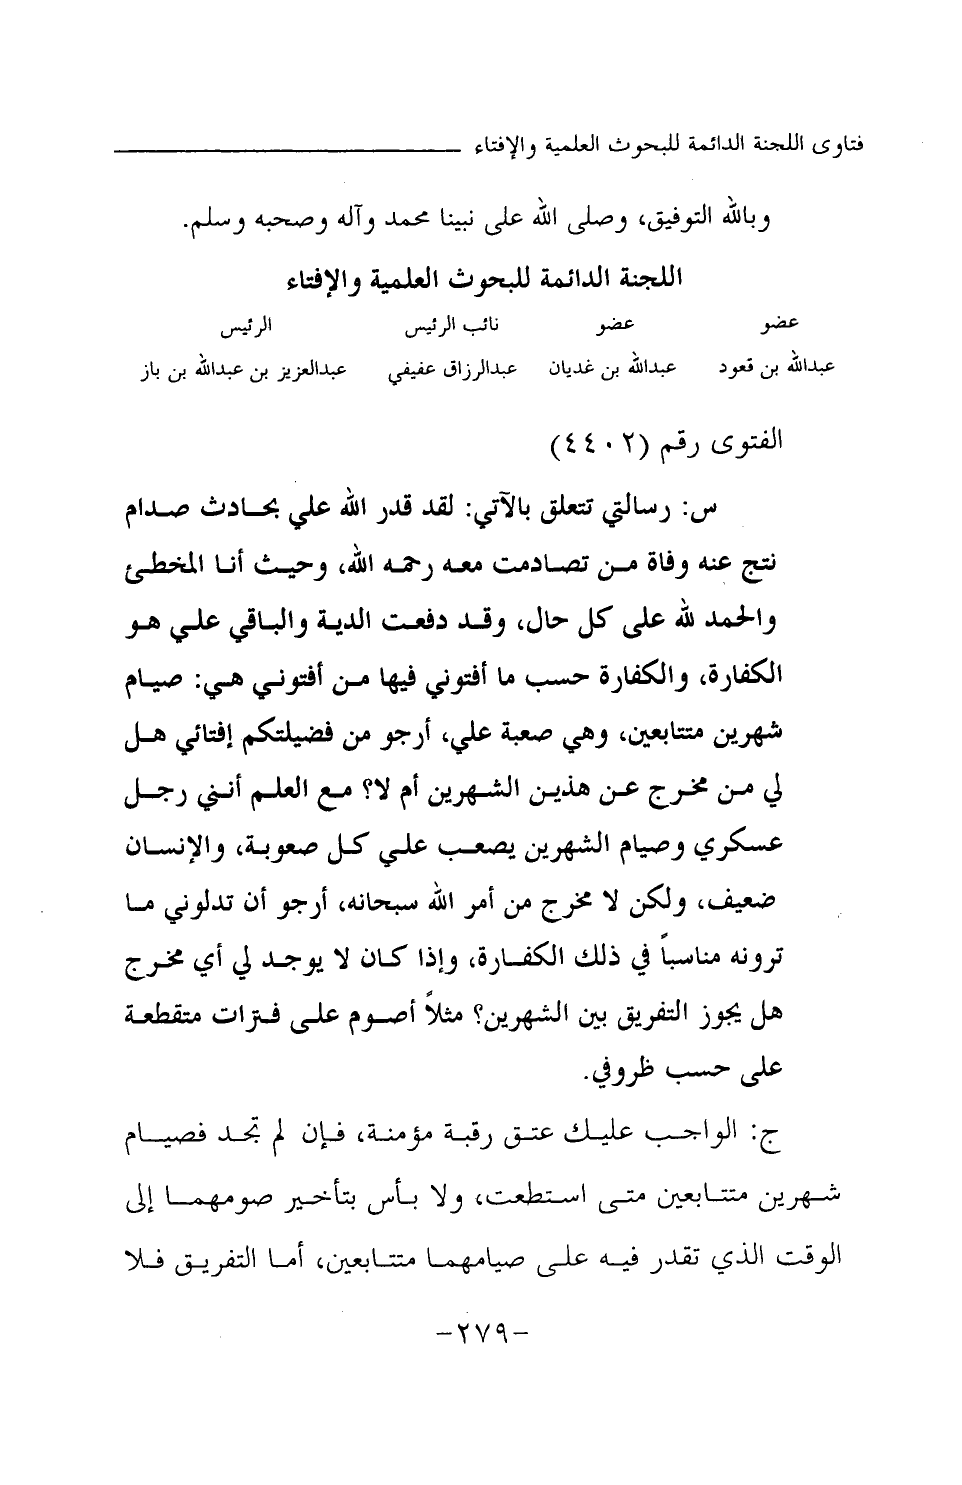 فتاوى اللجنة الدائمة للبحوث العلمية والإفتاء
وبالله التوفيق، وصلى الله على نبينا محمد وآله وصحبه وسلم.
اللجنة الدائمة للبحوث العلمية والإفتاء
عضو عضو نائب الرئيس الرئيس
عبدالله بن قعود عبدالله بن غديان عبدالرزاق عفيفي عبدالعزيز بن عبدالله بن باز
الفتوى رقم (٤٤٠٢)
س: رسالتي تتعلق بالآتي: لقد قدر الله علي بحادث صدام
نتج عنه وفاة من تصادمت معه رحمه الله، وحيث أنا المخطئ
والحمد لله على كل حال، وقد دفعت الدية والباقي علي هو
الكفارة، والكفارة حسب ما أفتوني فيها من أفتوني هي: صيام
شهرين متتابعين، وهي صعبة علي، أرجو من فضيلتكم إفتائي هل
لي من مخرج عن هذين الشهرين أم لا؟ مع العلم أنني رجل
عسكري وصيام الشهرين يصعب علي كل صعوبة، والإنسان
ضعيف، ولكن لا مخرج من أمر الله سبحانه، أرجو أن تدلوني ما
ترونه مناسباً في ذلك الكفارة، وإذا كان لا يوجد لي أي مخرج
هل يجوز التفريق بين الشهرين؟ مثلاً أصوم على فترات متقطعة
على حسب ظروفي.
ج: الواجب عليك عتق رقبة مؤمنة، فإن لم تجد فصيام
شهرين متتابعين متى استطعت، ولا بأس بتأخير صومهما إلى
الوقت الذي تقدر فيه على صيامهما متتابعين، أما التفريق فلا
-٢٧٩-